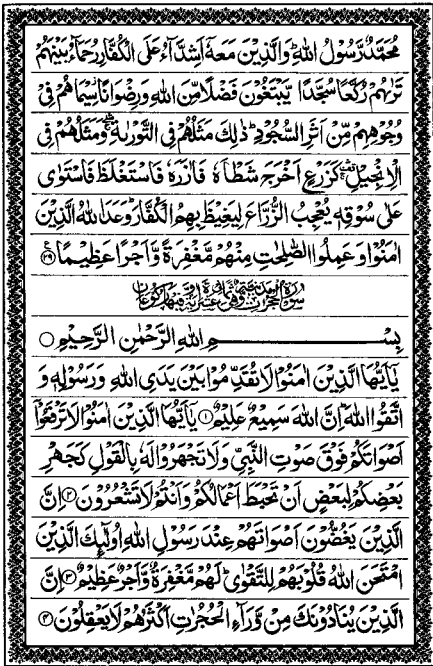 مُحَمَّدٌ رَّسُوْلُ اللهِ ؕ وَالَّذِيْنَ مَعَهٗۤ اَشِدَّآءُ عَلَى الْكُفَّارِ رُحَمَآءُ بَيْنَهُمْ
تَرٰىهُمْ رُكَّعًا سُجَّدًا يَّبْتَغُوْنَ فَضْلًا مِّنَ اللهِ وَرِضْوَانًا ؗ سِيْمَاهُمْ فِيْ
وُجُوْهِهِمْ مِّنْ اَثَرِ السُّجُوْدِ ؕ ذٰلِكَ مَثَلُهُمْ فِي التَّوْرٰىةِ ۛۖ وَمَثَلُهُمْ فِي
الْاِنْجِيْلِ ۛۚ كَزَرْعٍ اَخْرَجَ شَطْـَٔهٗ فَاٰزَرَهٗ فَاسْتَغْلَظَ فَاسْتَوٰى
عَلٰى سُوْقِهٖ يُعْجِبُ الزُّرَّاعَ لِيَغِيْظَ بِهِمُ الْكُفَّارَ ؕ وَعَدَ اللهُ الَّذِيْنَ
اٰمَنُوْا وَ عَمِلُوا الصّٰلِحٰتِ مِنْهُمْ مَّغْفِرَةً وَّاَجْرًا عَظِيْمًا ﴿۲۹﴾
بِسْمِ اللهِ الرَّحْمٰنِ الرَّحِيْمِ ○
يٰۤاَيُّهَا الَّذِيْنَ اٰمَنُوْا لَا تُقَدِّمُوْا بَيْنَ يَدَيِ اللهِ وَرَسُوْلِهٖ وَ
اتَّقُوا اللهَ ؕ اِنَّ اللهَ سَمِيْعٌ عَلِيْمٌ ﴿۱﴾ يٰۤاَيُّهَا الَّذِيْنَ اٰمَنُوْا لَا تَرْفَعُوْۤا
اَصْوَاتَكُمْ فَوْقَ صَوْتِ النَّبِيِّ وَلَا تَجْهَرُوْا لَهٗ بِالْقَوْلِ كَجَهْرِ
بَعْضِكُمْ لِبَعْضٍ اَنْ تَحْبَطَ اَعْمَالُكُمْ وَاَنْتُمْ لَا تَشْعُرُوْنَ ﴿۲﴾ اِنَّ
الَّذِيْنَ يَغُضُّوْنَ اَصْوَاتَهُمْ عِنْدَ رَسُوْلِ اللهِ اُولٰٓئِكَ الَّذِيْنَ
امْتَحَنَ اللهُ قُلُوْبَهُمْ لِلتَّقْوٰى ؕ لَهُمْ مَّغْفِرَةٌ وَّاَجْرٌ عَظِيْمٌ ﴿۳﴾ اِنَّ
الَّذِيْنَ يُنَادُوْنَكَ مِنْ وَّرَآءِ الْحُجُرٰتِ اَكْثَرُهُمْ لَا يَعْقِلُوْنَ ﴿۴﴾